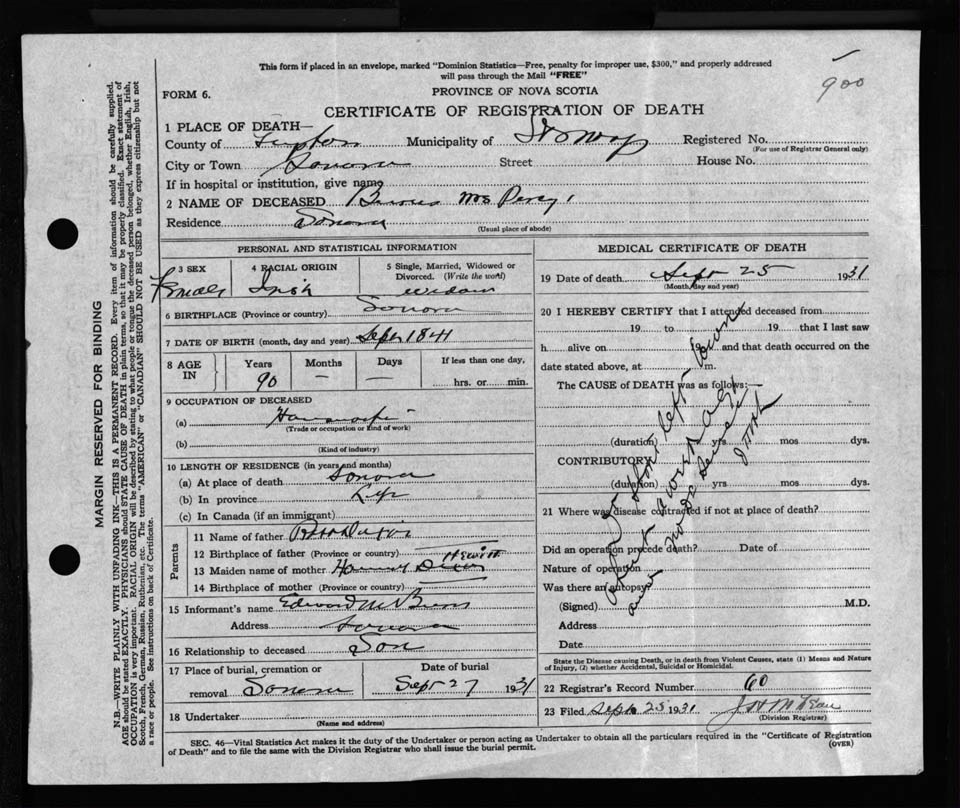 900
This form if placed in an envelope, marked "Dominion Statistics—Free, penalty for improper use, $300," and properly addressed
will pass through the Mail "FREE"
FORM 6.
PROVINCE OF NOVA SCOTIA
CERTIFICATE OF REGISTRATION OF DEATH
1 PLACE OF DEATH—
County of Municipality of St Marys Registered No.
(For use of Registrar General only)
City or Town Sonora Street House No.
If in hospital or institution, give name
2 NAME OF DECEASED Mrs Percy
Residence Sonora
(Usual place of abode)
PERSONAL AND STATISTICAL INFORMATION
3 SEX 4 RACIAL ORIGIN 5 Single, Married, Widowed or
Divorced. (Write the word)
Female Irish Widow
6 BIRTHPLACE (Province or country) Sonora
7 DATE OF BIRTH (month, day and year) Sept 1841
8 AGE IN Years Months Days If less than one day,
90 — — hrs. or min.
9 OCCUPATION OF DECEASED
(a)
(Trade or occupation or kind of work)
(b)
(Kind of industry)
10 LENGTH OF RESIDENCE (in years and months)
(a) At place of death Sonora
(b) In province Life
(c) In Canada (if an immigrant)
Parents
11 Name of father
12 Birthplace of father (Province or country)
Hewitt
13 Maiden name of mother
14 Birthplace of mother (Province or country)
15 Informant's name Edward
Address Sonora
16 Relationship to deceased Son
17 Place of burial, cremation or Date of burial
removal Sonora Sept 27 1931
18 Undertaker
(Name and address)
MEDICAL CERTIFICATE OF DEATH
19 Date of death Sept 25 1931
(Month, day and year)
20 I HEREBY CERTIFY that I attended deceased from
19 to 19 that I last saw
h alive on 19 and that death occurred on the
date stated above, at m.
The CAUSE of DEATH was as follows:—
(duration) yrs mos dys.
CONTRIBUTORY
(duration) yrs mos dys.
21 Where was disease contracted if not at place of death?
Did an operation precede death? Date of
Nature of operation
Was there an autopsy
(Signed) M.D.
Address
Date
State the Disease causing Death, or in death from Violent Causes, state (1) Means and Nature
of Injury, (2) whether Accidental, Suicidal or Homicidal.
22 Registrar's Record Number 60
23 Filed Sept 25 1931
(Division Registrar)
SEC. 46—Vital Statistics Act makes it the duty of the Undertaker or person acting as Undertaker to obtain all the particulars required in the "Certificate of Registration
of Death" and to file the same with the Division Registrar who shall issue the burial permit.
(OVER)
MARGIN RESERVED FOR BINDING
N.B.—WRITE PLAINLY WITH UNFADING INK—THIS IS A PERMANENT RECORD. Every item of information should be carefully supplied.
AGE should be stated EXACTLY. PHYSICIANS should STATE CAUSE OF DEATH in plain terms, so that it may be properly classified. Exact statement of
OCCUPATION is very important. RACIAL ORIGIN will be described by stating to what people or tongue the deceased person belonged, whether English, Irish,
Scotch, French, German, Russian, Ruthenian, etc. The terms "AMERICAN" or "CANADIAN" SHOULD NOT BE USED as they express citizenship but not
a race or people. See instructions on back of Certificate.